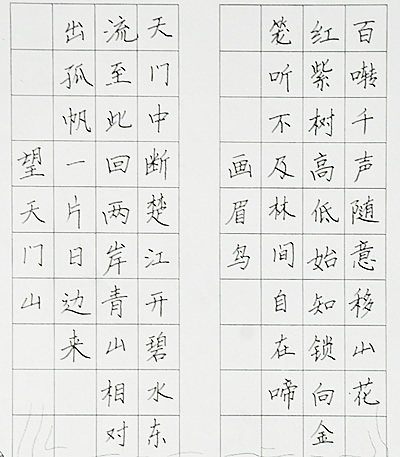 百啭千声随意移山花
红紫树高低始知锁向金
笼听不及林间自在啼
画眉鸟
天门中断楚江开碧水东
流至此回两岸青山相对
出孤帆一片日边来
望天门山